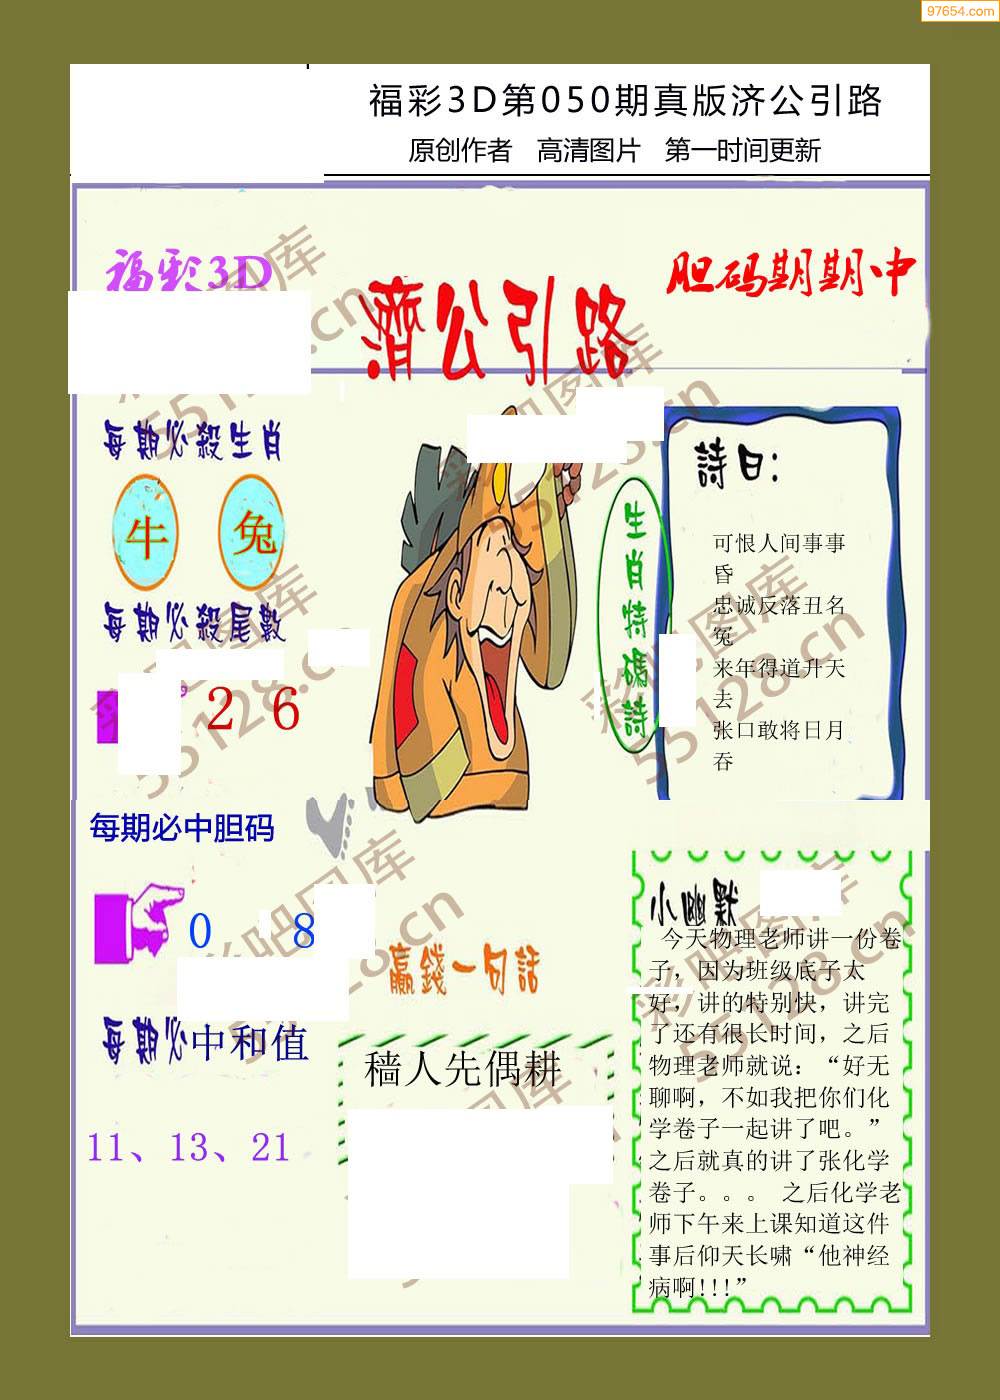 97654.com
福彩3D第050期真版济公引路
原创作者 高清图片 第一时间更新
福彩3D
濟公引路
胆码期期中
每期必殺生肖
牛 兔
每期必殺尾數
2 6
每期必中胆码
0 8
每期必中和值
11、13、21
生肖特碼詩
詩曰：
可恨人间事事
昏
忠诚反落丑名
冤
来年得道升天
去
张口敢将日月
吞
贏錢一句話
穑人先偶耕
小幽默
今天物理老师讲一份卷
子，因为班级底子太
好，讲的特别快，讲完
了还有很长时间，之后
物理老师就说：“好无
聊啊，不如我把你们化
学卷子一起讲了吧。”
之后就真的讲了张化学
卷子。。。 之后化学老
师下午来上课知道这件
事后仰天长啸“他神经
病啊!!!”
彩吧图库
55128.cn